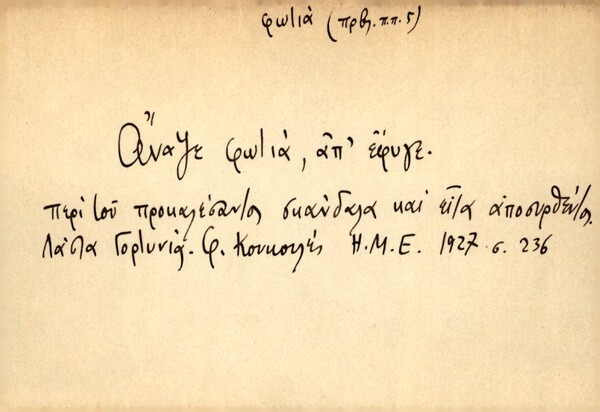 φωτιά (πρβλ. π.π. 5)
Ἄναψε φωτιά, ἀπ' ἔφυγε.
περὶ τοῦ προκαλέσαντος σκάνδαλα καὶ εἶτα ἀποσυρθέντος.
Λάστα Γορτυνίας. Φ. Κουκουλές Η.Μ.Ε. 1927 σ. 236